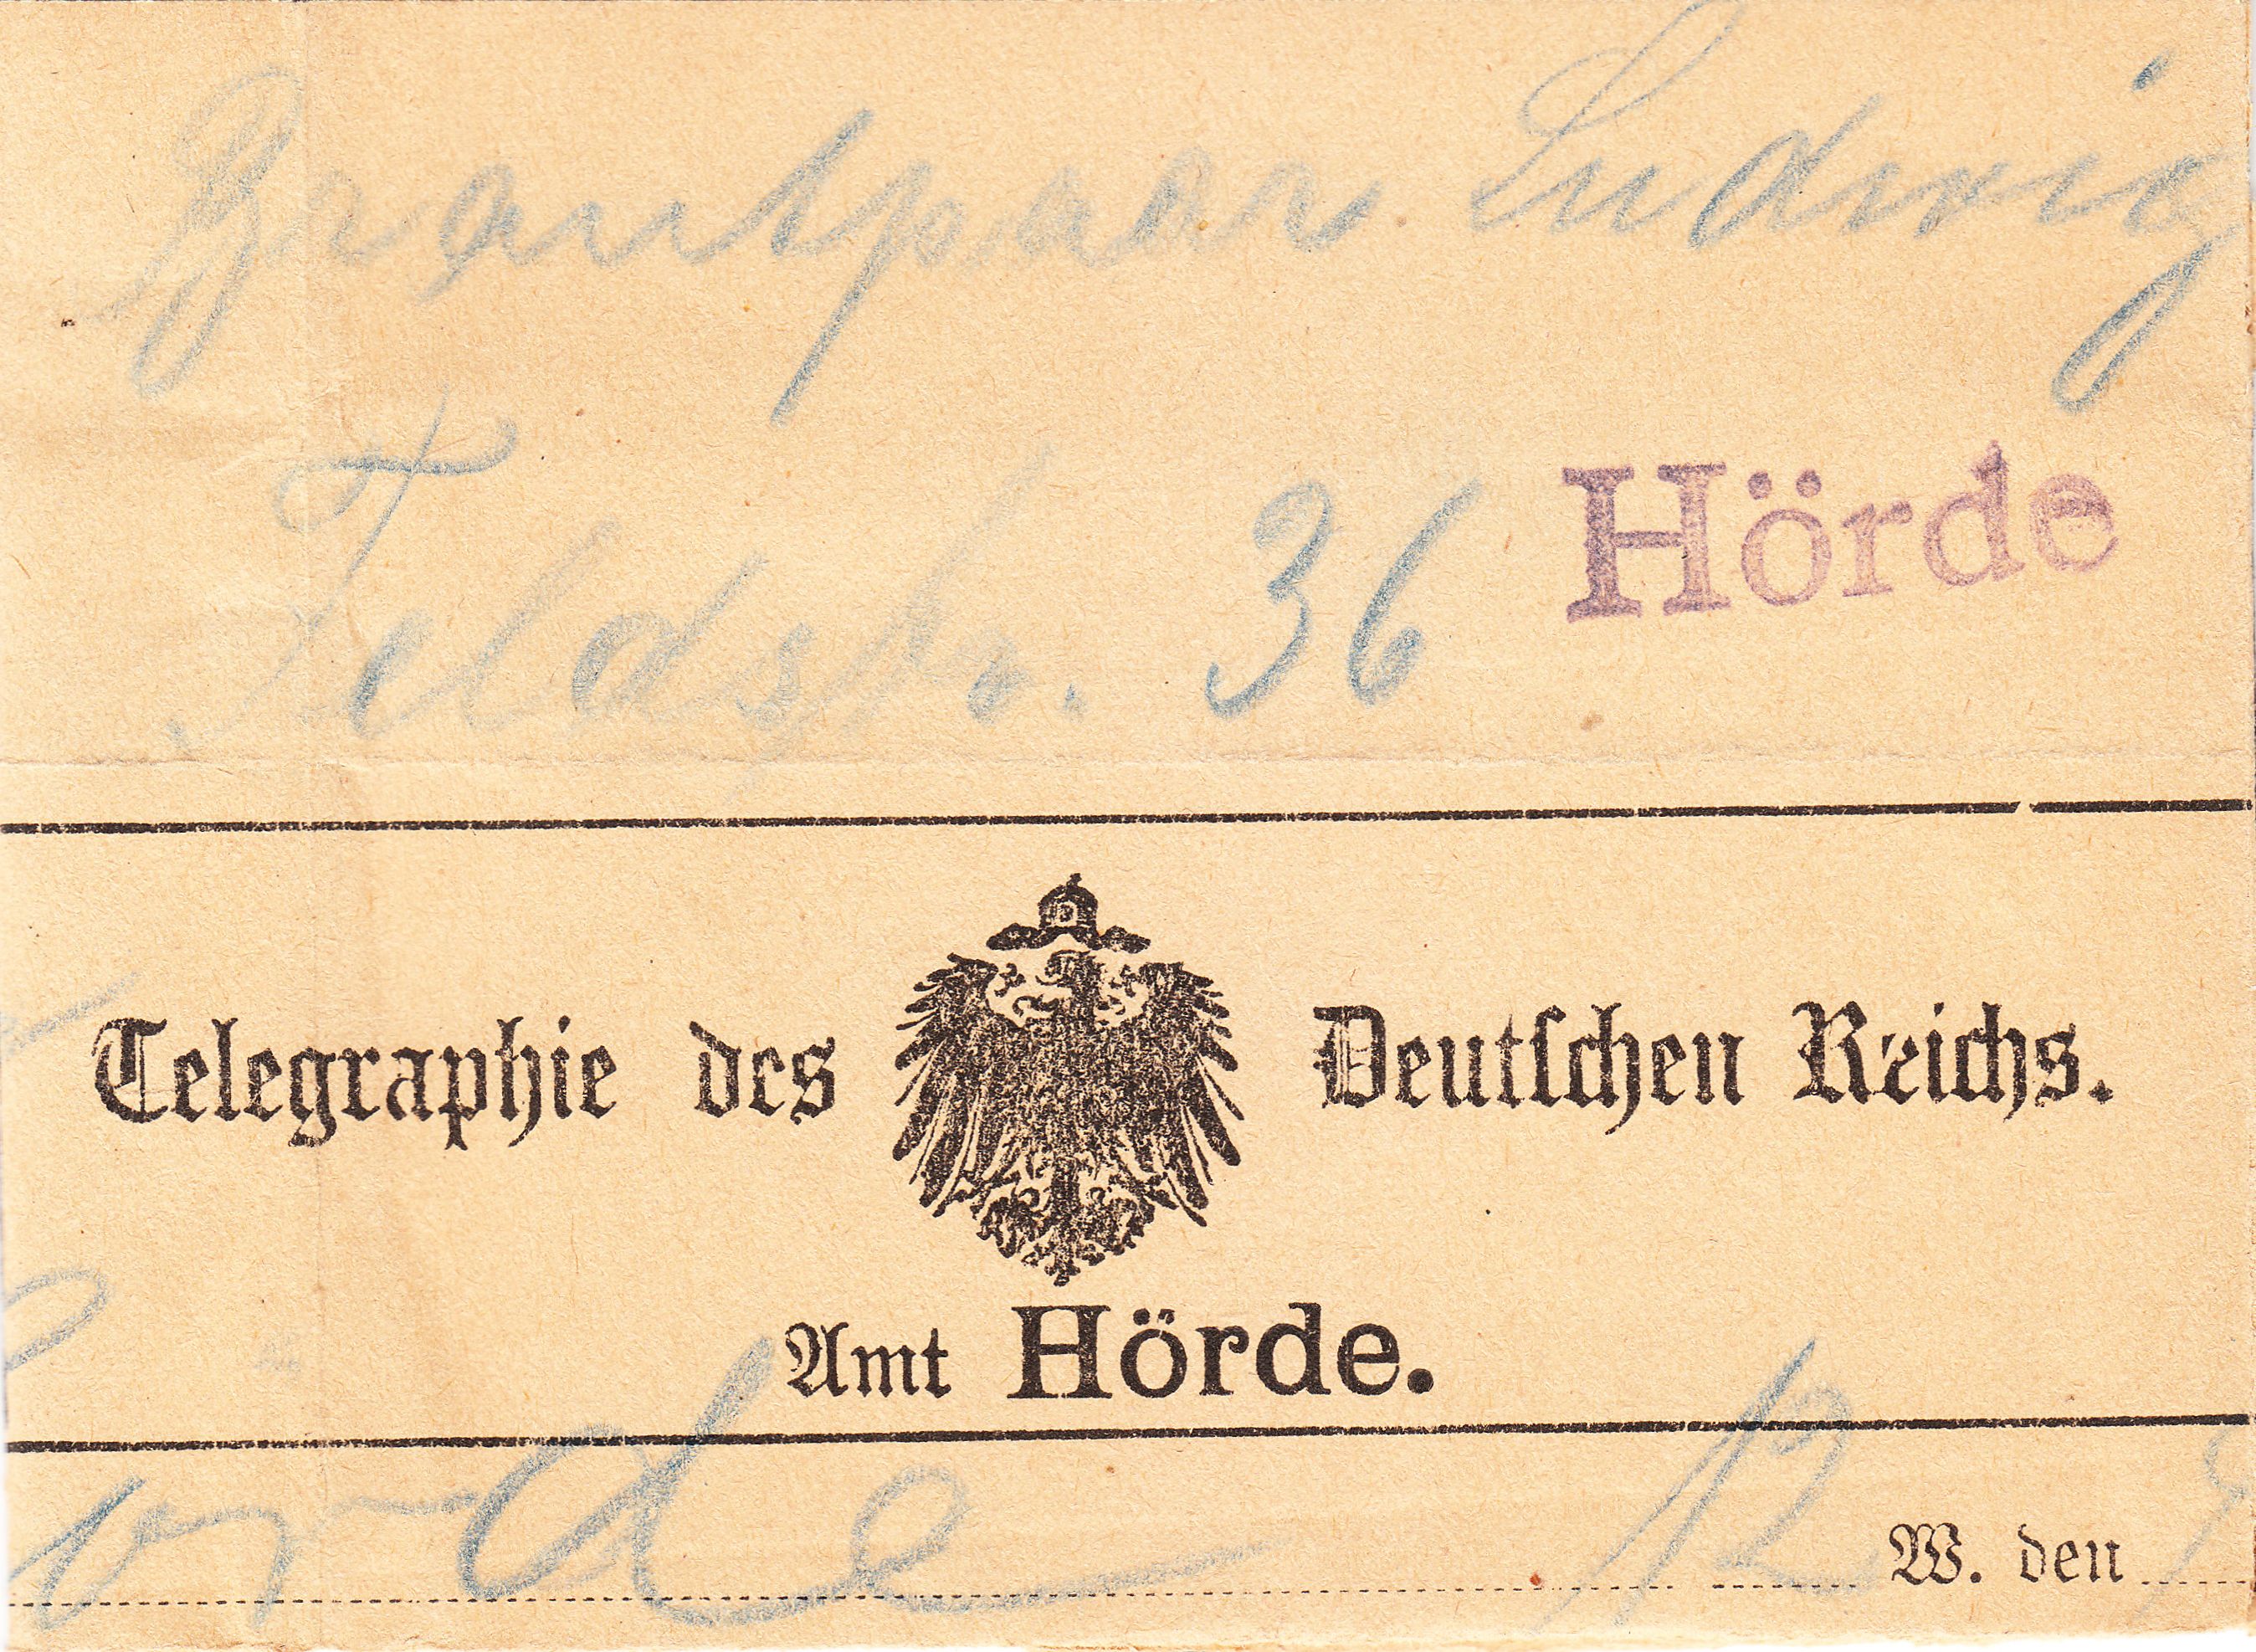 Brautpaar Ludwig
Feldstr. 36 Hörde
Telegraphie des Deutschen Reichs.
Amt Hörde.
12 W. den